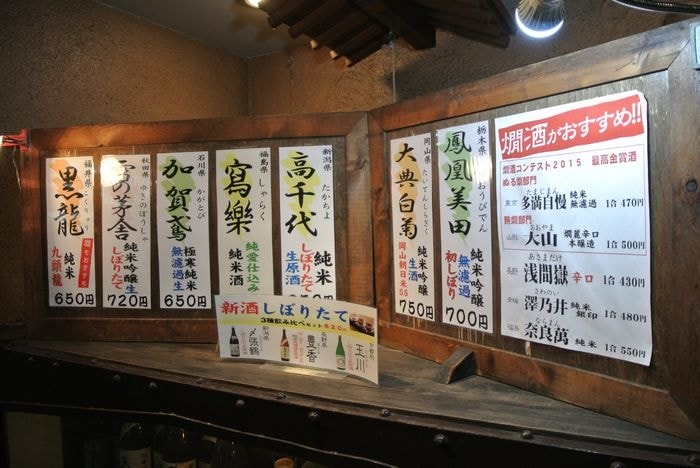 福井県
こくりゅう
黒龍
燗もおすすめ
純米
九頭龍
650円
秋田県
ゆきのぼうしゃ
雪の茅舎
純米吟醸
しぼりたて
生酒
720円
石川県
かがとび
加賀鳶
極寒純米
無濾過
生
650円
福島県
しゃらく
寫樂
純愛仕込み
純米酒
新潟県
たかちよ
高千代
純米
しぼりたて
生原酒
岡山県
たいてんしらぎく
大典白菊
純米吟醸
生酒
岡山朝日米55
750円
栃木県
ほうおうびでん
鳳凰美田
純米吟醸
無濾過
初しぼり
700円
燗酒がおすすめ!!
燗酒コンテスト2015 最高金賞酒
ぬる燗部門
東京 たまじまん 多満自慢 純米 無濾過 1合 470円
熱燗部門
山形 おおやま 大山 燗麗辛口 本醸造 1合 500円
長野 あさまだけ 浅間嶽 辛口 1合 430円
さわのい 澤乃井 純米 銀印 1合 480円
福島 ならまん 奈良萬 純米 1合 550円
新酒 しぼりたて
3種飲み比べセット 820円
新潟県
〆張鶴
長野県
豊香
京都府
玉川